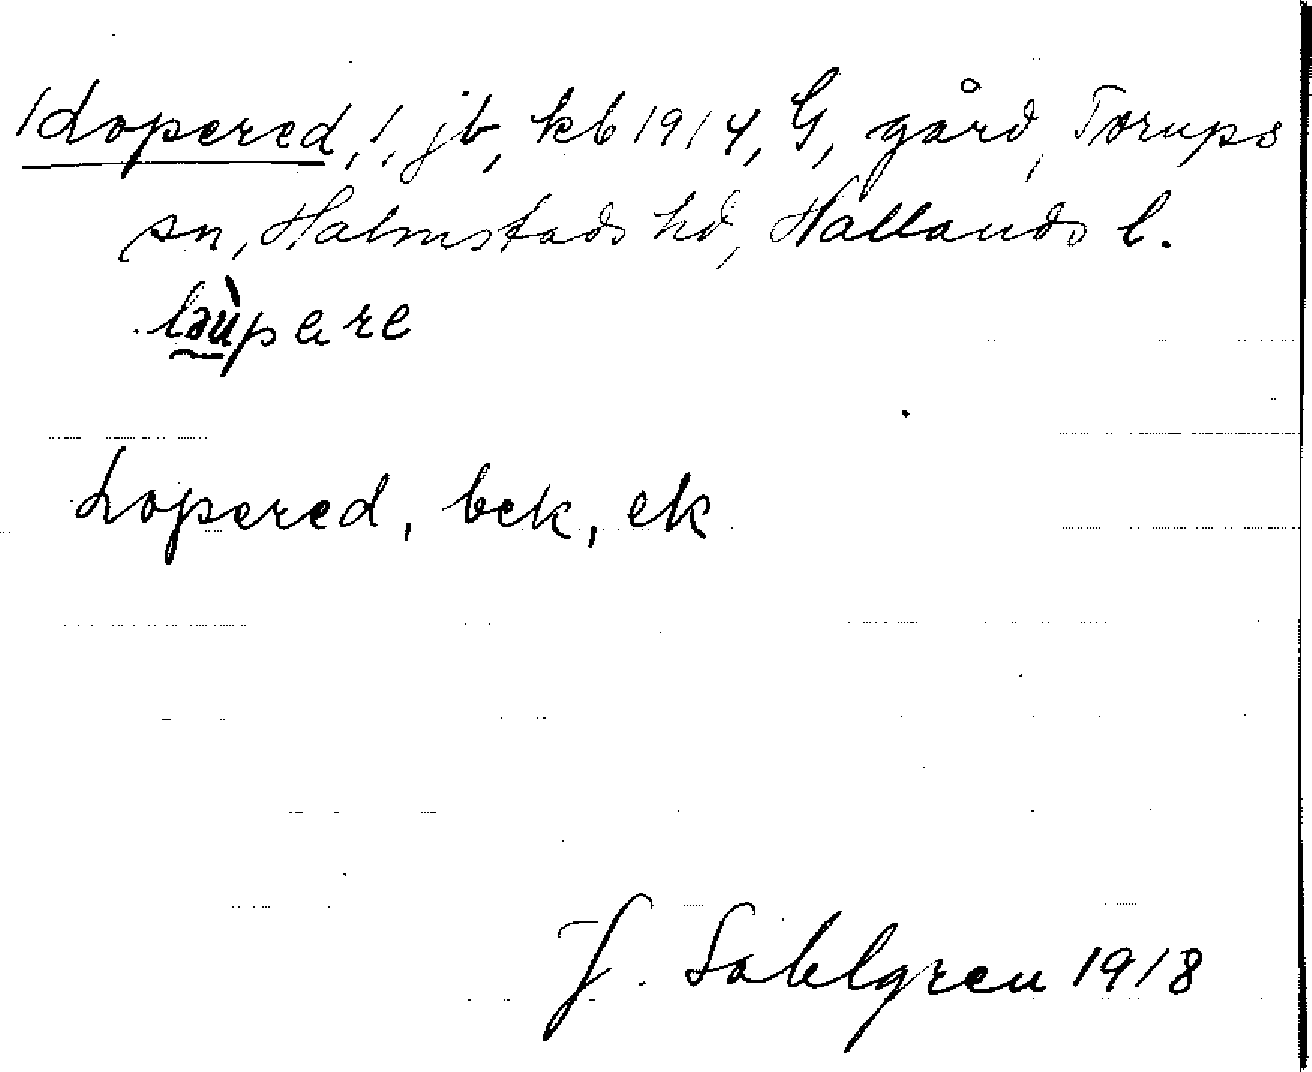 /Lopered,/, jb, kb 1914, G, gård, Torups
sn, Halmstads hd, Hallands l.
lau̇̀pare
Lopered, bek, ek
J. Sahlgren 1918